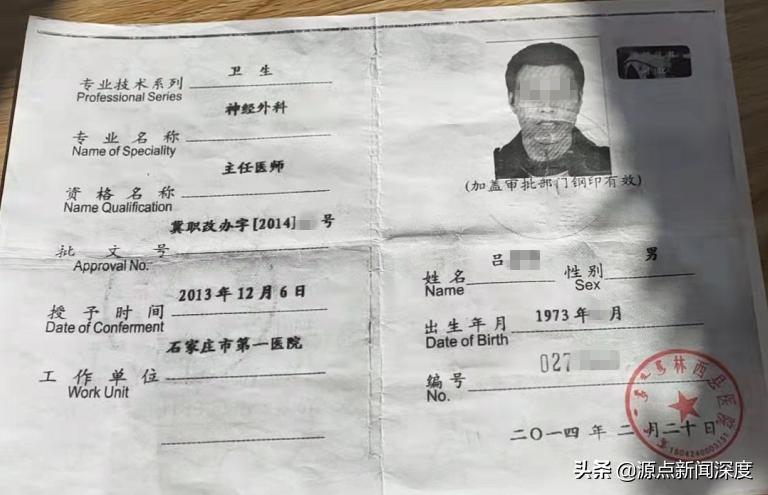 卫生
专业技术系列
Professional Series
神经外科
专业名称
Name of Speciality
主任医师
资格名称
Name Qualification
冀职改办字[2014] 号
批文号
Approval No.
2013年12月6日
授予时间
Date of Conferment
石家庄市第一医院
工作单位
Work Unit
(加盖审批部门钢印有效)
吕
姓名
Name
男
性别
Sex
1973年 月
出生年月
Date of Birth
027
编号
No.
林西县医院
二〇一四年二月二十日
头条 @源点新闻深度